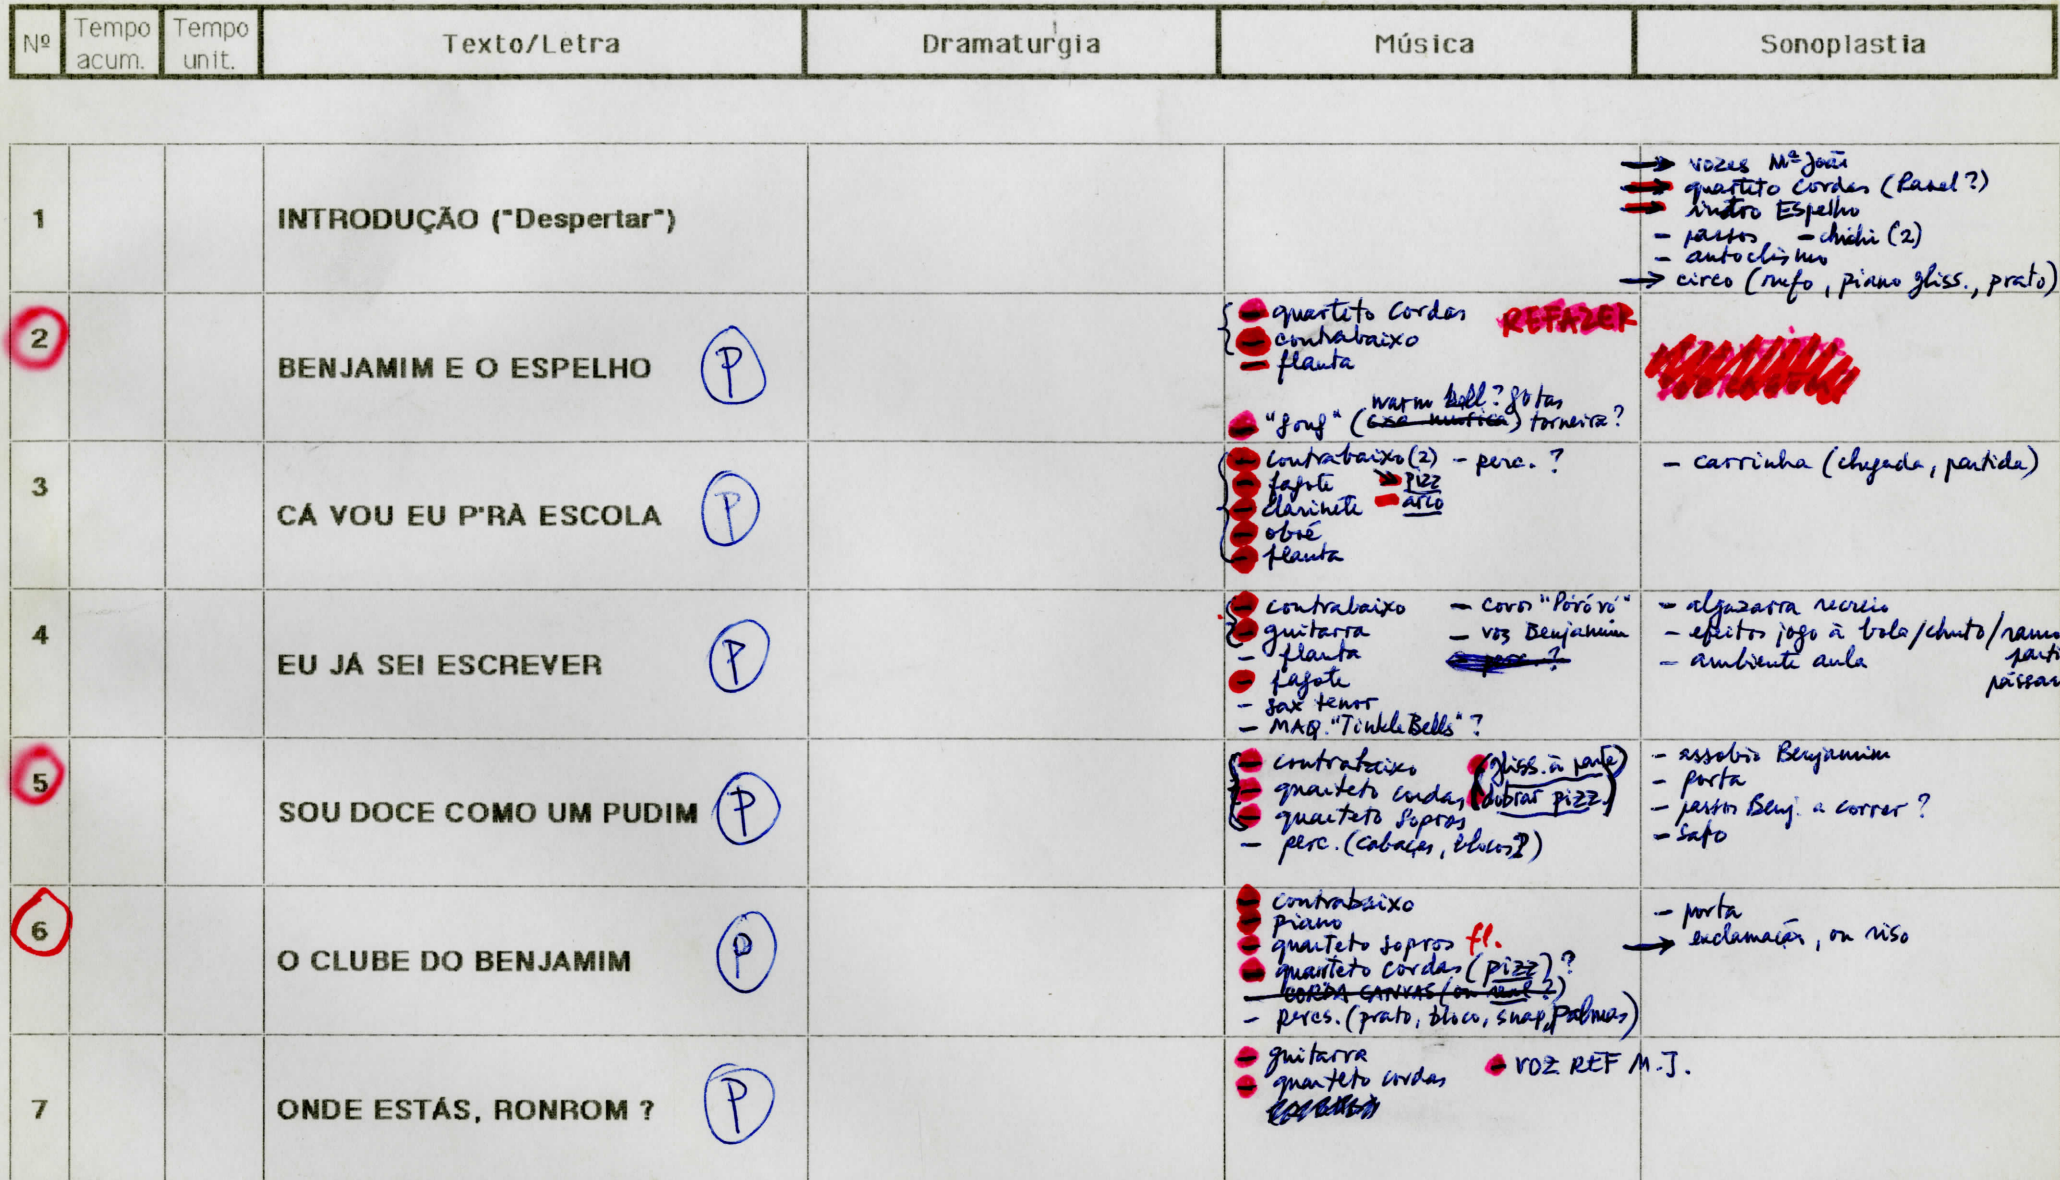 Nº
Tempo acum.
Tempo unit.
Texto/Letra
Dramaturgia
Música
Sonoplastia
1
INTRODUÇÃO ("Despertar")
→ vozes Mª João
quarteto cordas
→ intro Espelho
- passos - chichi (2)
- autoclismo
→ circo (rufo, piano gliss., prato)
2
BENJAMIM E O ESPELHO
P
- quarteto cordas REFAZER
- contrabaixo
- flauta
warm bell? gotas
- "gong" ( ) torneira?
3
CÁ VOU EU P'RÀ ESCOLA
P
- contrabaixo (2) - perc. ?
- fagote - pizz
- clarinete - arco
- oboé
- flauta
- carrinha (chegada, partida)
4
EU JÁ SEI ESCREVER
P
- contrabaixo - coros "Póróró"
- guitarra - voz Benjamim
- flauta
- fagote
- sax tenor
- MAQ. "TinkleBells" ?
- algazarra recreio
- efeitos jogo à bola/chuto/
- ambiente aula
5
SOU DOCE COMO UM PUDIM
P
- contrabaixo (gliss. à parte)
- quarteto cordas (dobrar pizz.)
- quarteto sopros
- perc. (cabaças, blocos?)
- assobio Benjamim
- porta
- passos Benj. a correr ?
- sapo
6
O CLUBE DO BENJAMIM
P
- contrabaixo
- piano
- quarteto sopros fl.
- quarteto cordas (pizz) ?
- CORDA CANVAS (ou real ?)
- percs. (prato, bloco, snap, palmas)
- porta
→ exclamação, ou riso
7
ONDE ESTÁS, RONROM ?
P
- guitarra - VOZ REF M.J.
- quarteto cordas